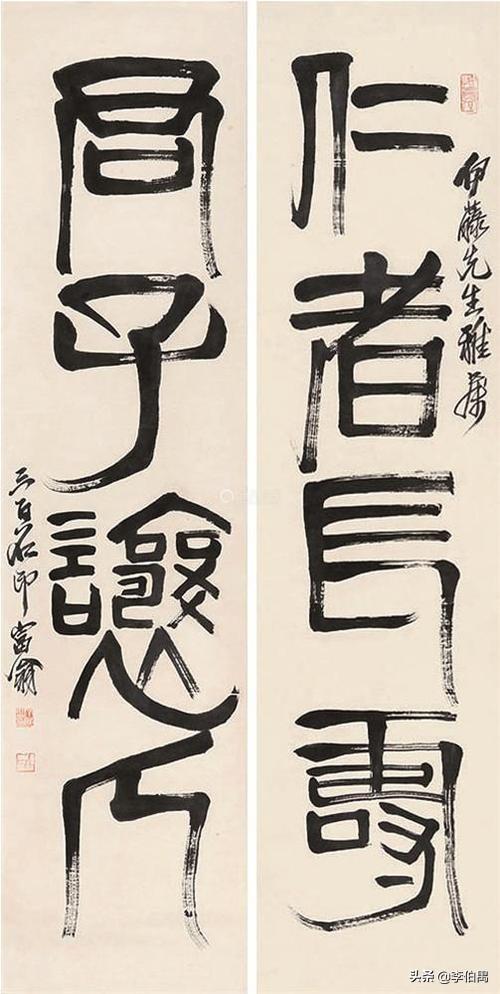 伊藤先生雅屬
仁者長壽
君子讓人
三百石印富翁
头条 @李伯禺